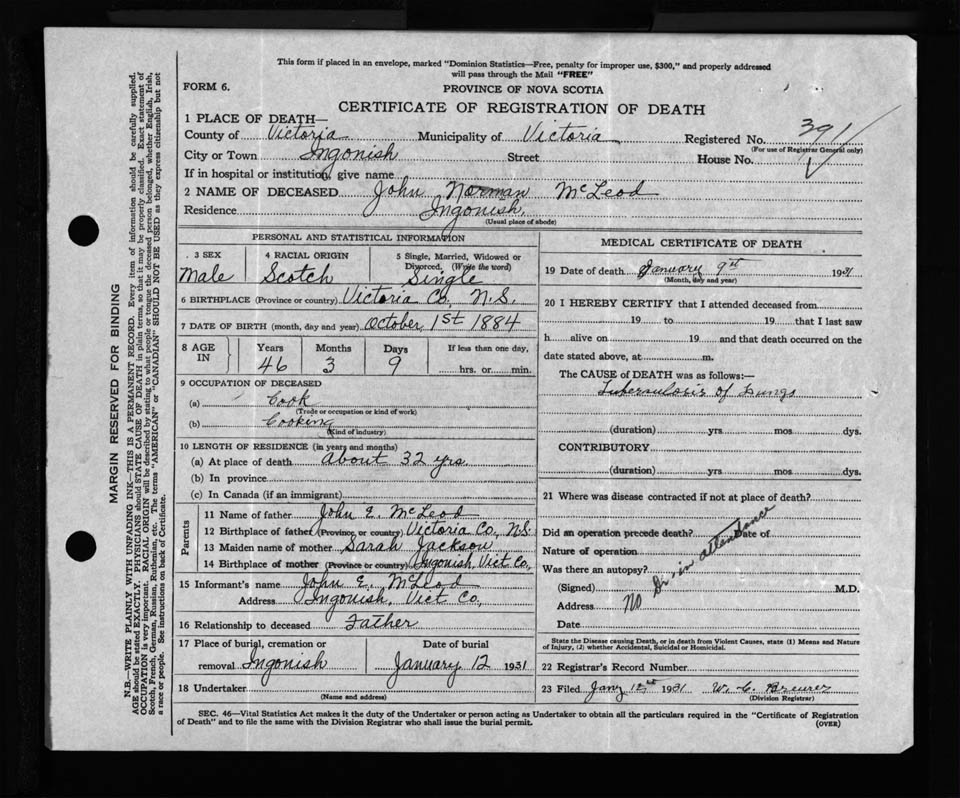 This form if placed in an envelope, marked "Dominion Statistics—Free, penalty for improper use, $300," and properly addressed
will pass through the Mail "FREE"
FORM 6.
PROVINCE OF NOVA SCOTIA
CERTIFICATE OF REGISTRATION OF DEATH
1 PLACE OF DEATH—
County of Victoria Municipality of Victoria Registered No. 391
(For use of Registrar General only)
City or Town Ingonish Street House No.
If in hospital or institution, give name
2 NAME OF DECEASED John Norman McLeod
Residence Ingonish,
(Usual place of abode)
PERSONAL AND STATISTICAL INFORMATION
3 SEX 4 RACIAL ORIGIN 5 Single, Married, Widowed or Divorced. (Write the word)
Male Scotch Single
6 BIRTHPLACE (Province or country) Victoria Co, N.S.
7 DATE OF BIRTH (month, day and year) October 1st 1884
8 AGE IN Years Months Days If less than one day,
46 3 9 hrs. or min.
9 OCCUPATION OF DECEASED
(a) Cook
(Trade or occupation or kind of work)
(b) Cooking
(Kind of industry)
10 LENGTH OF RESIDENCE (in years and months)
(a) At place of death About 32 yrs.
(b) In province
(c) In Canada (if an immigrant)
Parents
11 Name of father John E. McLeod
12 Birthplace of father (Province or country) Victoria Co., N.S.
13 Maiden name of mother Sarah Jackson
14 Birthplace of mother (Province or country) Ingonish, Vict Co,
15 Informant's name John E. McLeod
Address Ingonish, Vict Co,
16 Relationship to deceased Father
17 Place of burial, cremation or removal Ingonish Date of burial January 12 1931
18 Undertaker
(Name and address)
MEDICAL CERTIFICATE OF DEATH
19 Date of death January 9th 1931
(Month, day and year)
20 I HEREBY CERTIFY that I attended deceased from
19 to 19 that I last saw
h alive on 19 and that death occurred on the
date stated above, at m.
The CAUSE of DEATH was as follows:—
Tuberculosis of Lungs
(duration) yrs. mos. dys.
CONTRIBUTORY
(duration) yrs. mos dys.
21 Where was disease contracted if not at place of death?
Did an operation precede death? Date of
Nature of operation
Was there an autopsy?
(Signed) M.D.
Address
No Dr, in attendance
Date
State the Disease causing Death, or in death from Violent Causes, state (1) Means and Nature
of Injury, (2) whether Accidental, Suicidal or Homicidal.
22 Registrar's Record Number
23 Filed Jany 12th 1931 W. C.
(Division Registrar)
SEC. 46—Vital Statistics Act makes it the duty of the Undertaker or person acting as Undertaker to obtain all the particulars required in the "Certificate of Registration
of Death" and to file the same with the Division Registrar who shall issue the burial permit.
(OVER)
MARGIN RESERVED FOR BINDING
N.B.—WRITE PLAINLY WITH UNFADING INK—THIS IS A PERMANENT RECORD. Every item of information should be carefully supplied.
AGE should be stated EXACTLY. PHYSICIANS should STATE CAUSE OF DEATH in plain terms, so that it may be properly classified. Exact statement of
OCCUPATION is very important. RACIAL ORIGIN will be described by stating to what people or tongue the deceased person belonged, whether English, Irish,
Scotch, French, German, Russian, Ruthenian, etc. The terms "AMERICAN" or "CANADIAN" SHOULD NOT BE USED as they express citizenship but not
a race or people. See instructions on back of Certificate.